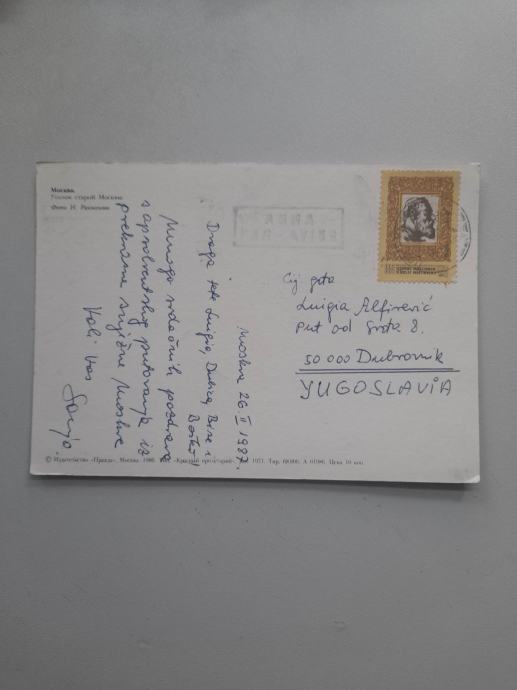 Москва.
Уголок старой Москвы
Фото Н. Рахманова
Moskva 26. II 1987.
Draga teta Luigia, Dubica, Brise i
Mnogo srdačnih pozdrava
s apsolventskog putovanja iz
prekrasne snježne Moskve
Voli Vas
Sanja.
Cij. gđa
Luigia Alfirević
Put od Srđa 8.
50 000 Dubrovnik
YUGOSLAVIA
© Издательство «Правда», Москва. 1986. «Красный пролетарий». 1971. Тир. Цена 10 коп.